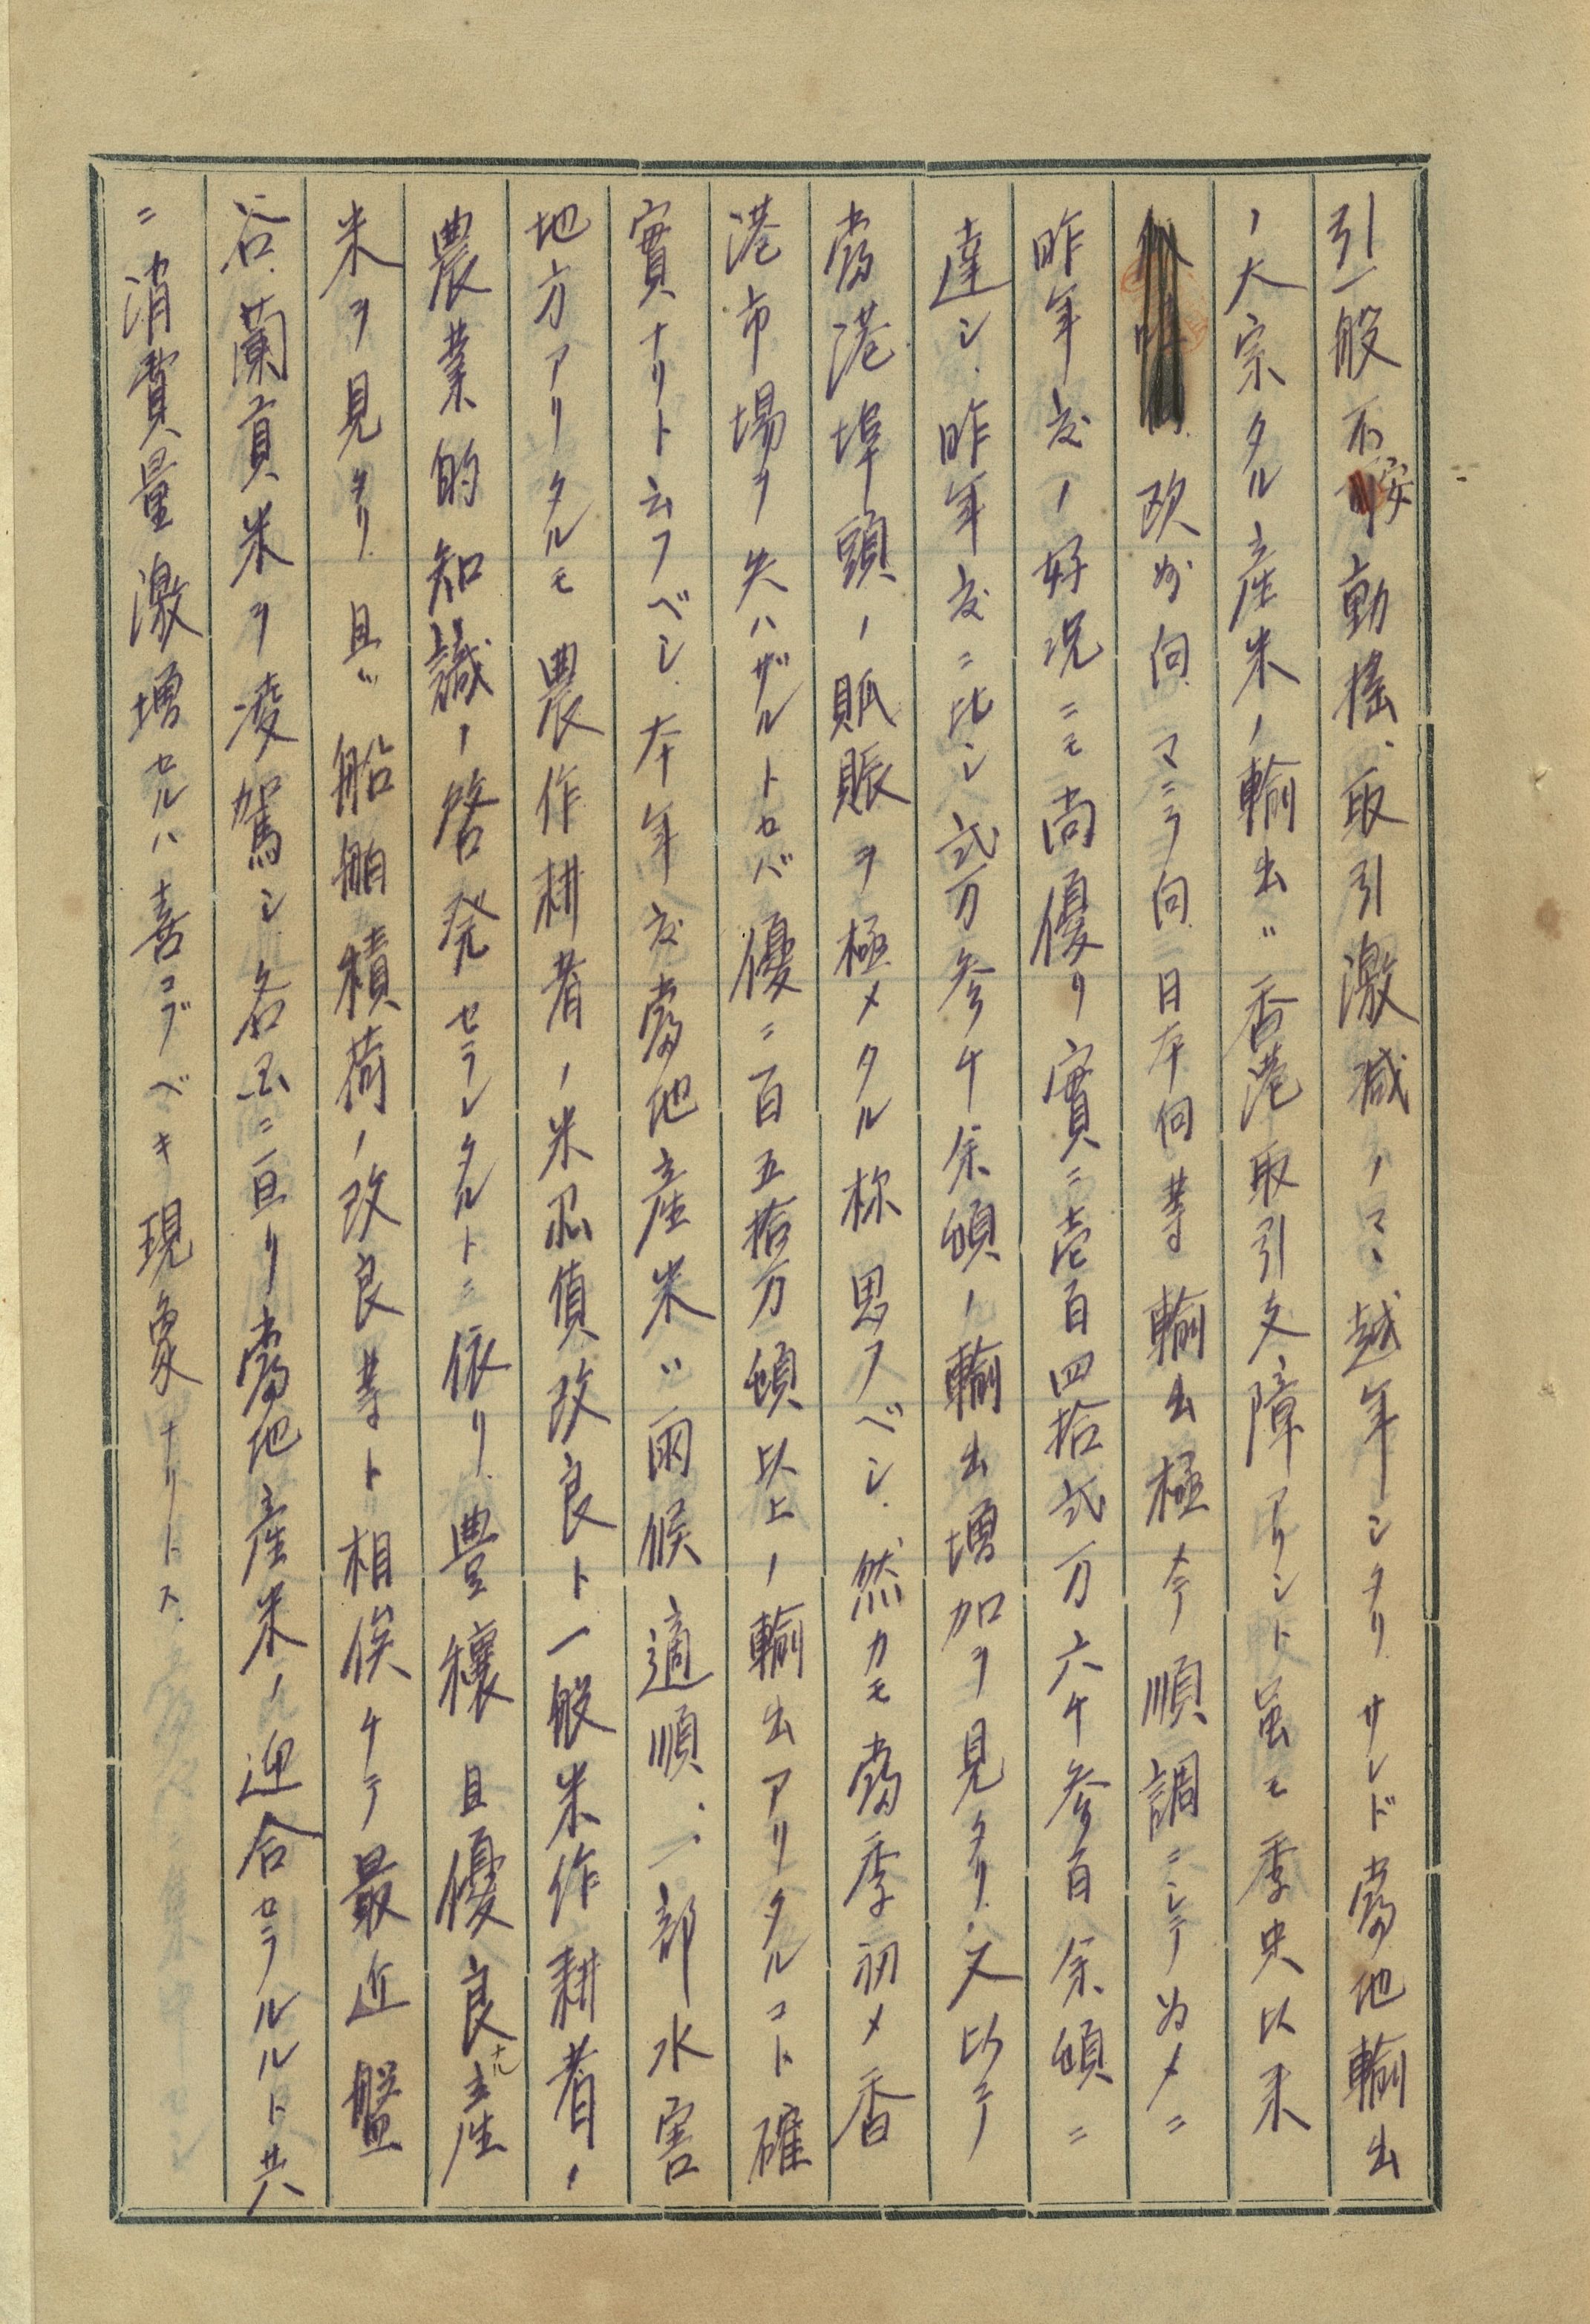 引一般不安動搖、取引激減ノマヽ越年シタリ サレド當地輸出
ノ大宗タル産米ノ輸出ハ香港取引支障アリシト虽モ季央以来
欧州向、マニラ向、日本向等 輸出極メテ順調ニシテ為メニ
昨年度ノ好況ニモ尚優リ實ニ壱百四拾弐万六千参百余頓ニ
達シ、昨年度ニ比シ弐万参千余頓ノ輸出増加ヲ見タリ、又以テ
當港埠頭ノ賑賑ヲ極メタル称思フベシ、然カモ當季初メ香
港市場ヲ失ハザルトセバ優ニ百五拾万頓以上ノ輸出アリタルコト確
實ナリト云フベシ、本年度當地産米ハ雨候適順、一部水害
地方アリタルモ農作耕者ノ米品質改良ト一般米作耕者ノ
農業的知識ノ啓発セラレタルトニ依リ、豊穰且優良ナル産
米ヲ見タリ 且ツ船舶積荷ノ改良等ト相俟ケテ最近盤
谷、蘭貢米ヲ凌駕シ、各国ニ亘リ當地産米ノ迎合セラルルト共
ニ消費量激増セルハ喜コブベキ現象ナリトス、